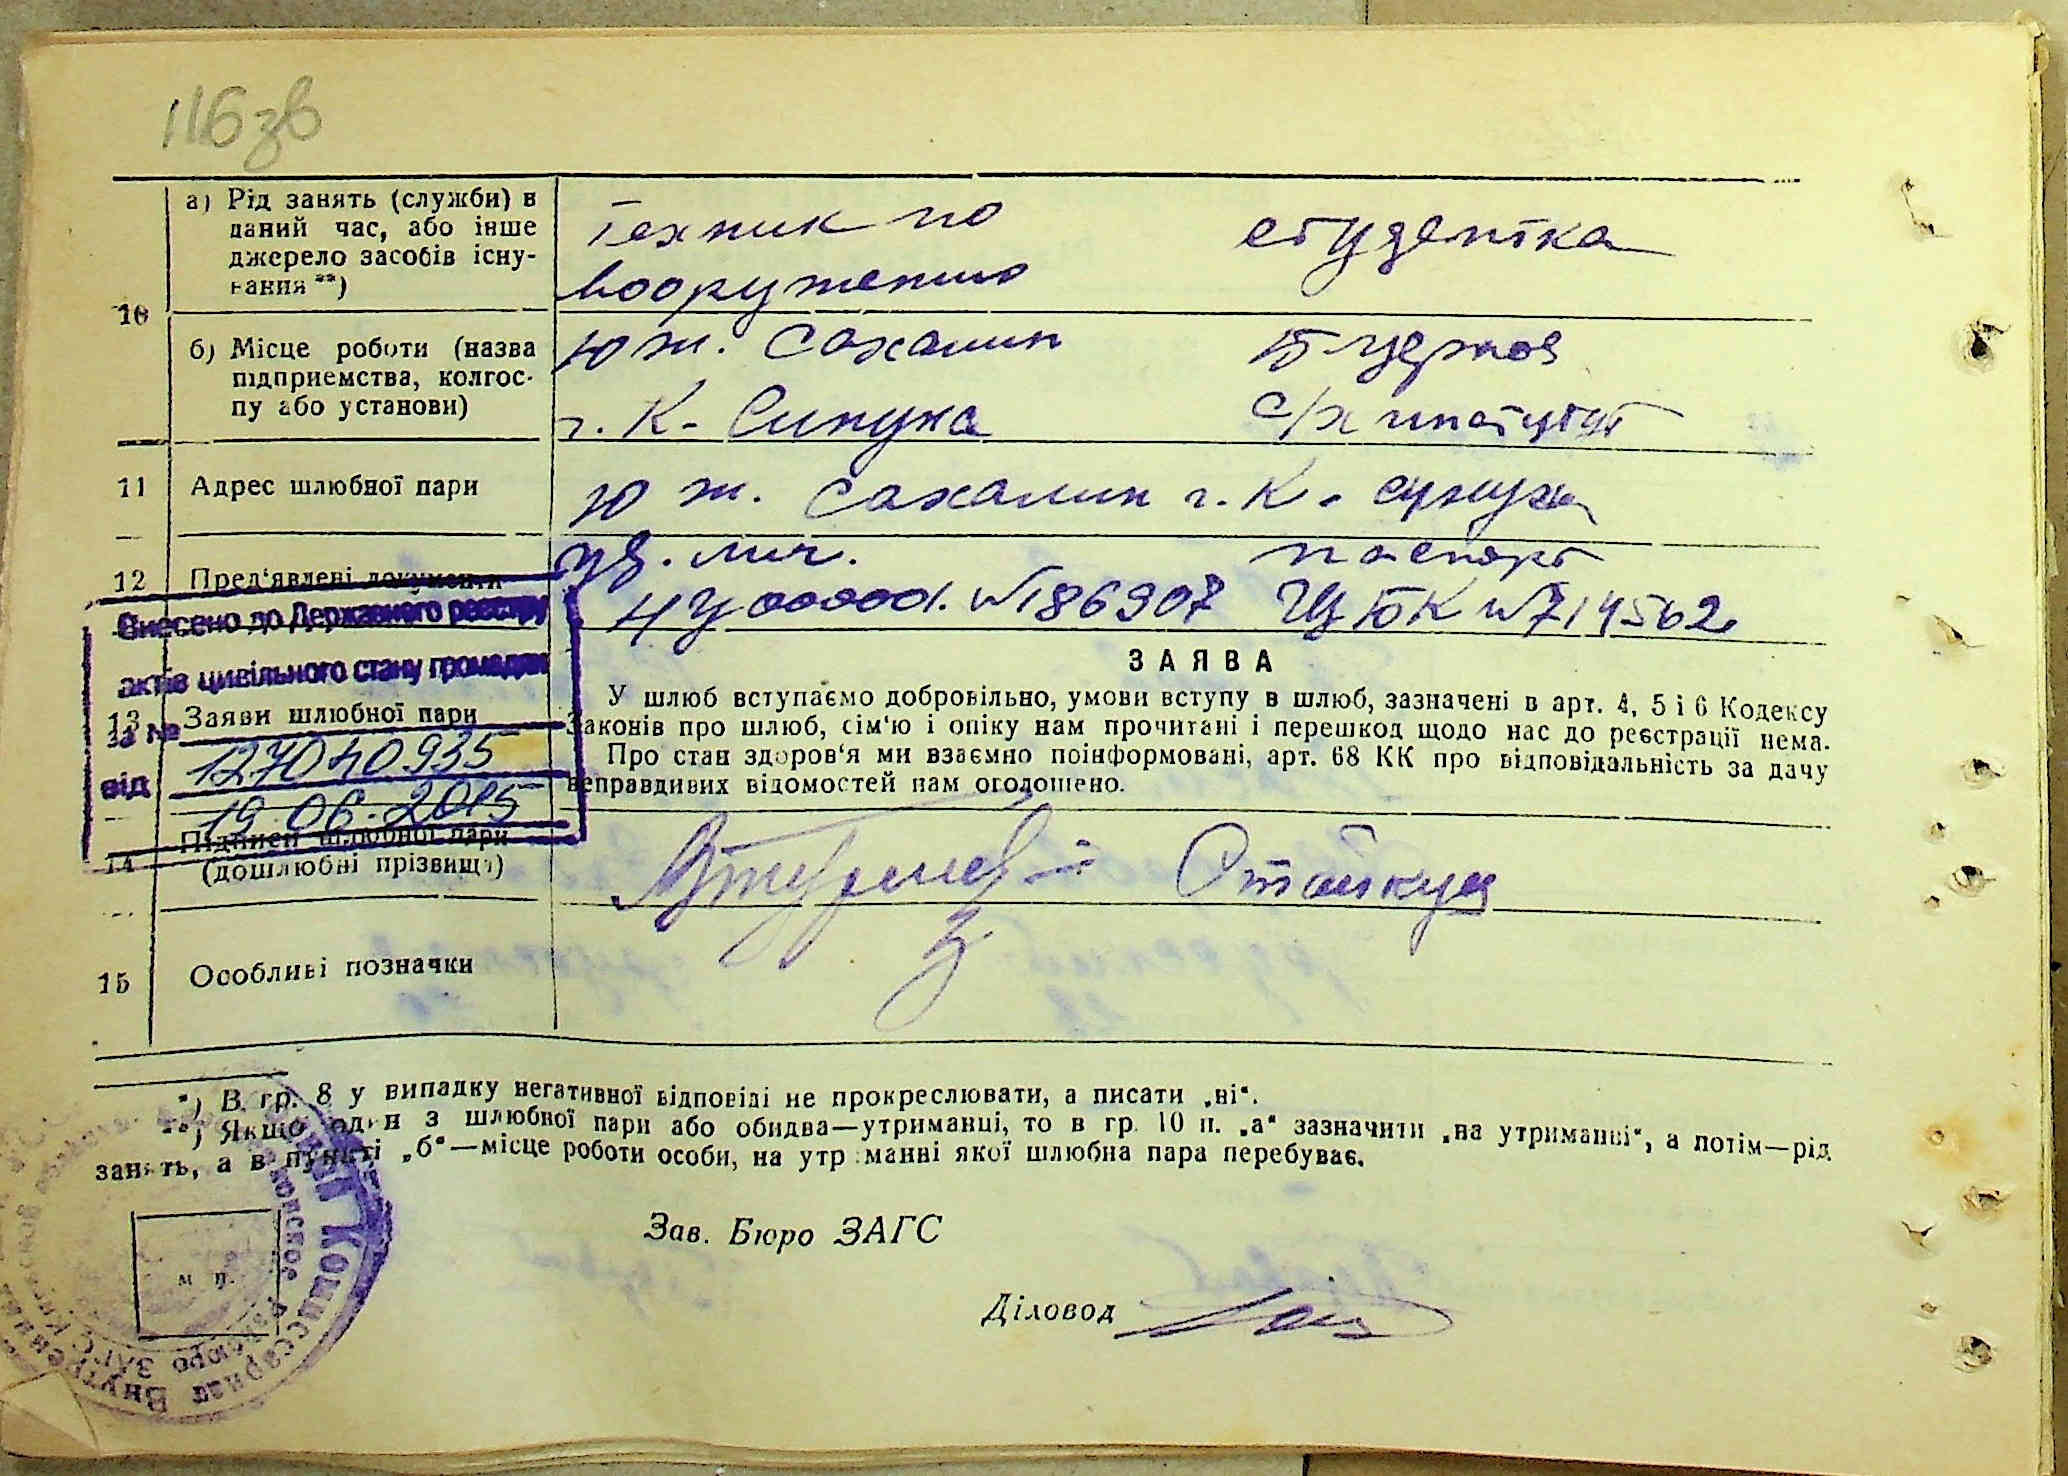 116 зв
а) Рід занять (служби) в
даний час, або інше
джерело засобів існу-
вання **)
Техник по
вооружению
студентка
10
б) Місце роботи (назва
підприємства, колгос-
пу або установи)
Юж. Сахалин
г. К-
с/х институт
11 Адрес шлюбної пари
Юж. Сахалин г. К-
12 Пред'явлені документи
уд. лич.
№186907
паспорт
№714562
Внесено до Державного реєстру
актів цивільного стану громадян
за №
127040935
від
19.06.2015
13 Заяви шлюбної пари
ЗАЯВА
У шлюб вступаємо добровільно, умови вступу в шлюб, зазначені в арт. 4, 5 і 6 Кодексу
Законів про шлюб, сім'ю і опіку нам прочитані і перешкод щодо нас до реєстрації нема.
Про стан здоров'я ми взаємно поінформовані, арт. 68 КК про відповідальність за дачу
неправдивих відомостей нам оголошено.
14 Підписи шлюбної пари
(дошлюбні прізвища)
15 Особливі позначки
*) В гр. 8 у випадку негативної відповіді не прокреслювати, а писати „ні“.
**) Якщо один з шлюбної пари або обидва—утриманці, то в гр. 10 п. „а“ зазначити „на утриманні“, а потім—рід
занять, а в пункті „б“—місце роботи особи, на утриманні якої шлюбна пара перебуває.
м. п.
Зав. Бюро ЗАГС
Діловод